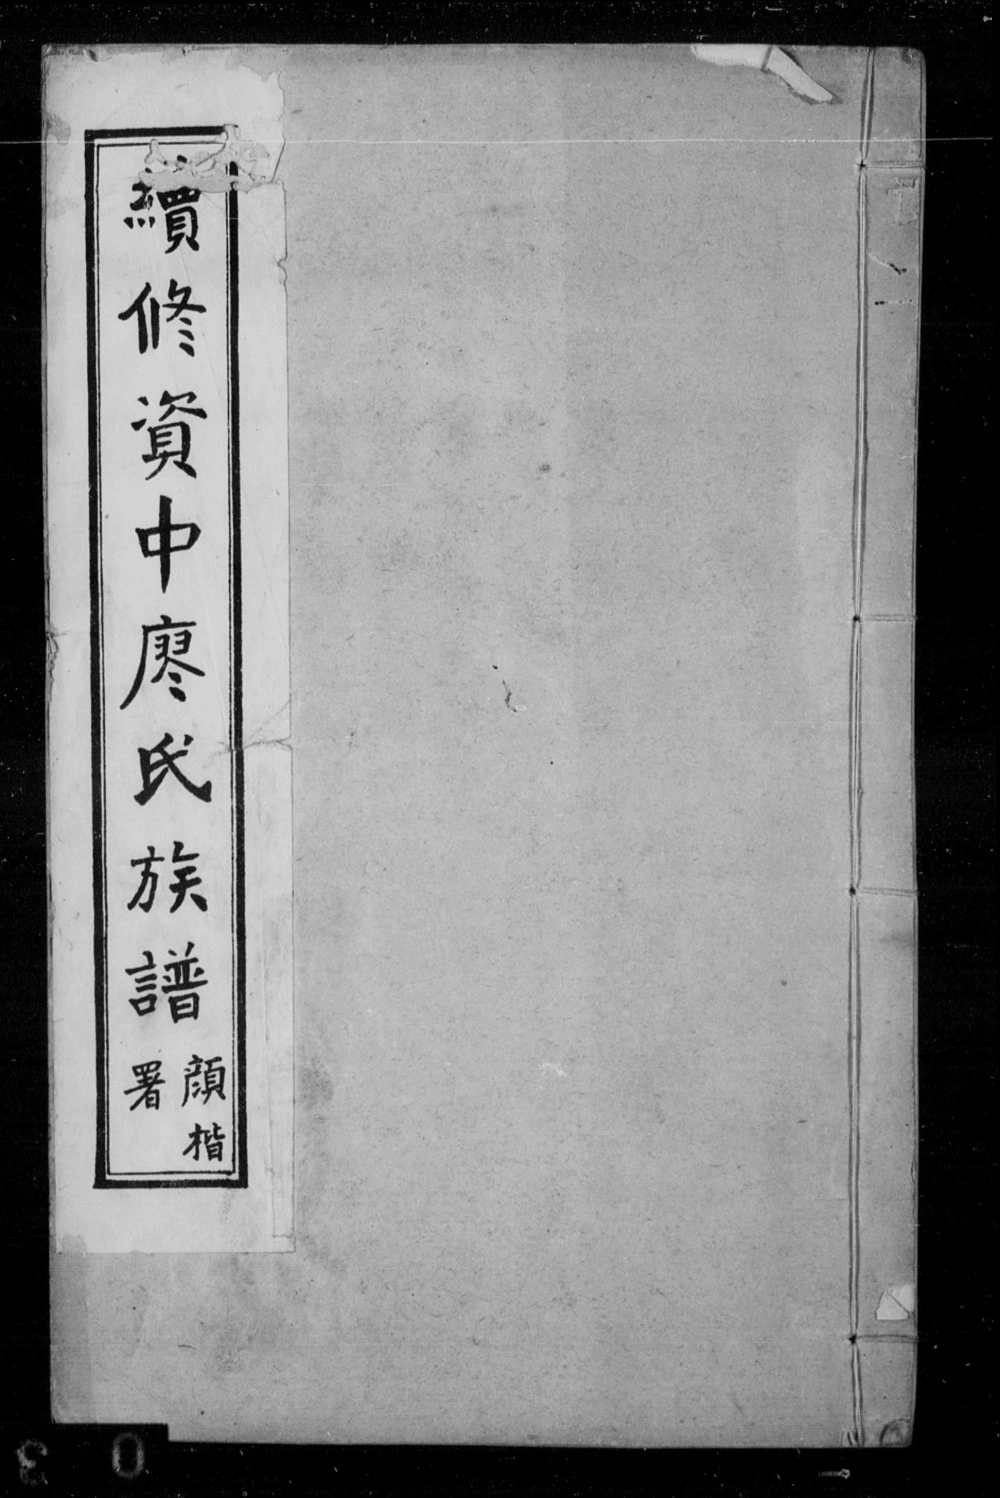 續修資中廖氏族譜
顔楷
署